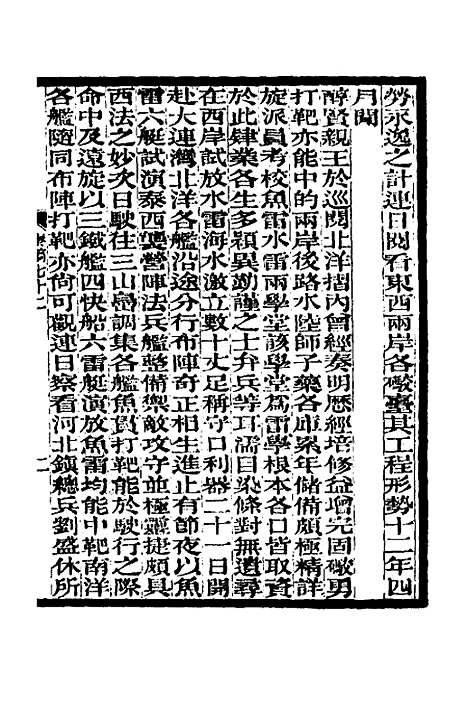 勞永逸之計連日閱看東西兩岸各礮臺其工程形勢十二年四
月間
醇賢親王於巡閱北洋摺內曾經奏明歷經培修益增完固礮勇
打靶亦能中的兩岸後路水陸師子藥各庫累年儲備頗極精詳
旋派員考校魚雷水雷兩學堂該學堂為雷學根本各口皆取資
於此肄業各生多穎異勤謹之士弁兵等耳濡目染條對無遺尋
在西岸試放水雷海水激立數十丈足稱守口利器二十一日開
赴大連灣北洋各艦沿途分行布陣奇正相生進止有節夜以魚
雷六艇試演泰西襲營陣法兵艦整備禦敵攻守並極靈捷頗具
西法之妙次日駛往三山島調集各艦魚貫打靶能於駛行之際
命中及遠旋以三鐵艦四快船六雷艇演放魚雷均能中靶南洋
各艦隨同布陣打靶亦尚可觀連日察看河北鎮總兵劉盛休所